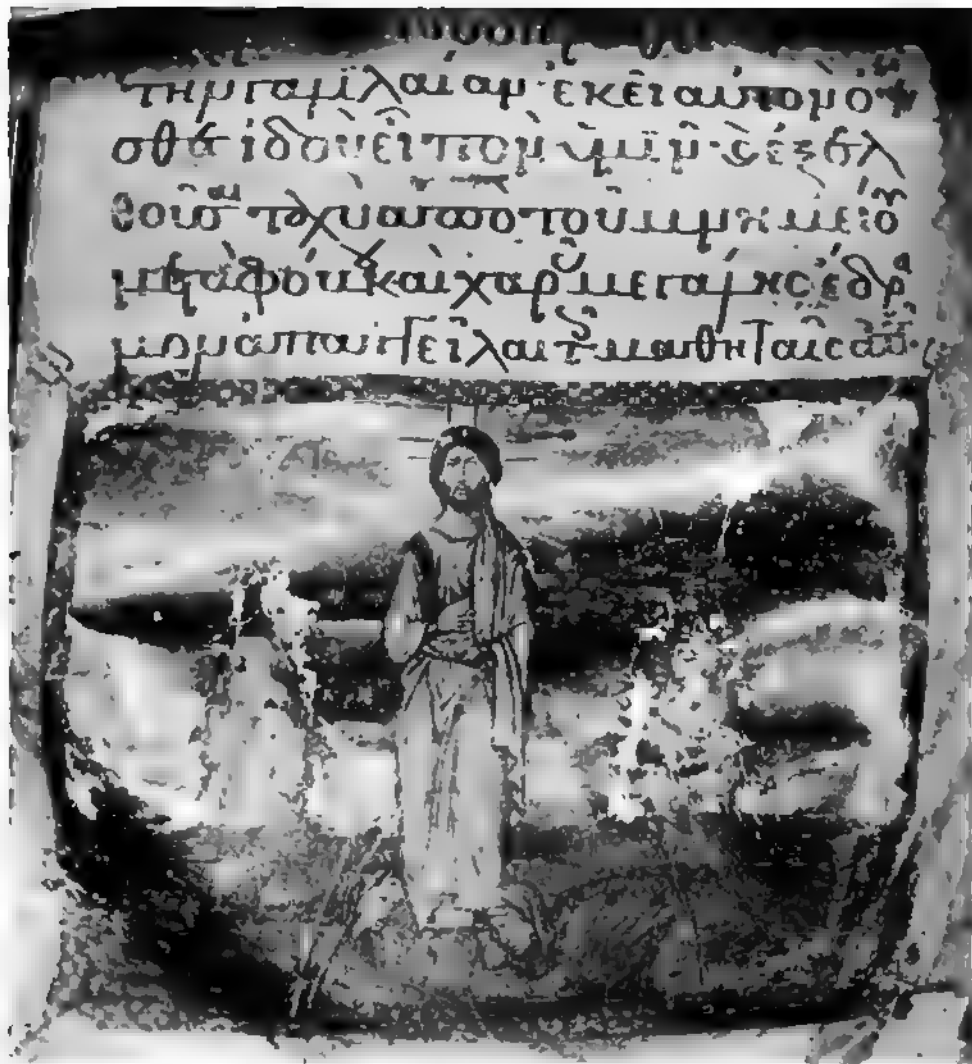 τὴν γαλιλαίαν· ἐκεῖ αὐτὸν ὄψ
σθε ἰδοὺ εἶπον ὑμῖν· κ ἐξελ
θοῦσαι ταχὺ ἀπὸ τοῦ μνημείου
μετὰ φόβου καὶ χαρ μεγάλης ἔδρα
μον ἀπαγγεῖλαι τ μαθηταῖς αὐτ·